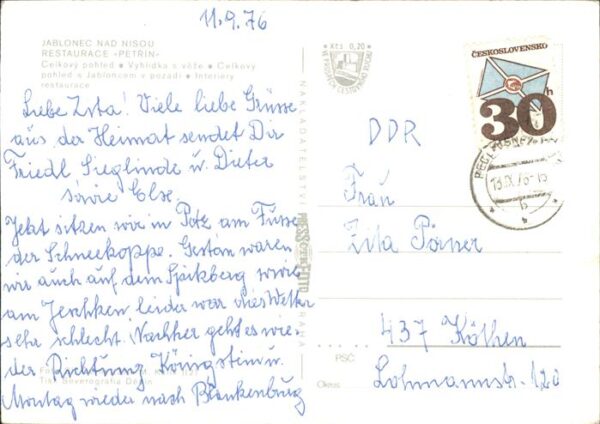 11.9.76
JABLONEC NAD NISOU
RESTAURACE »PETŘÍN«
Celkový pohled • Vyhlídka s věže • Celkový
pohled s Jabloncem v pozadí • Interiéry
restaurace
Liebe Zita! Viele liebe Grüsse
aus der Heimat sendet Dir
Friedl Sieglinde u. Dieter
sowie Else.
Jetzt sitzen wir in Petz am Fusse
der Schneekoppe. Gestern waren
wir auch auf dem Spitzberg sowie
am Jeschken leider war das Wetter
sehr schlecht. Nachher geht es wie-
der Richtung Königstein u.
Montag wieder nach Blankenburg
Severografia Děčín
NAKLADATELSTVÍ
PRESSFOTO
PRAHA
Kčs 0,20
ČESKOSLOVENSKO
30h
13.IX.76-15
b
DDR
Frau
Zita Pörner
437 Köthen
PSČ
Lohmannstr. 120
Okres